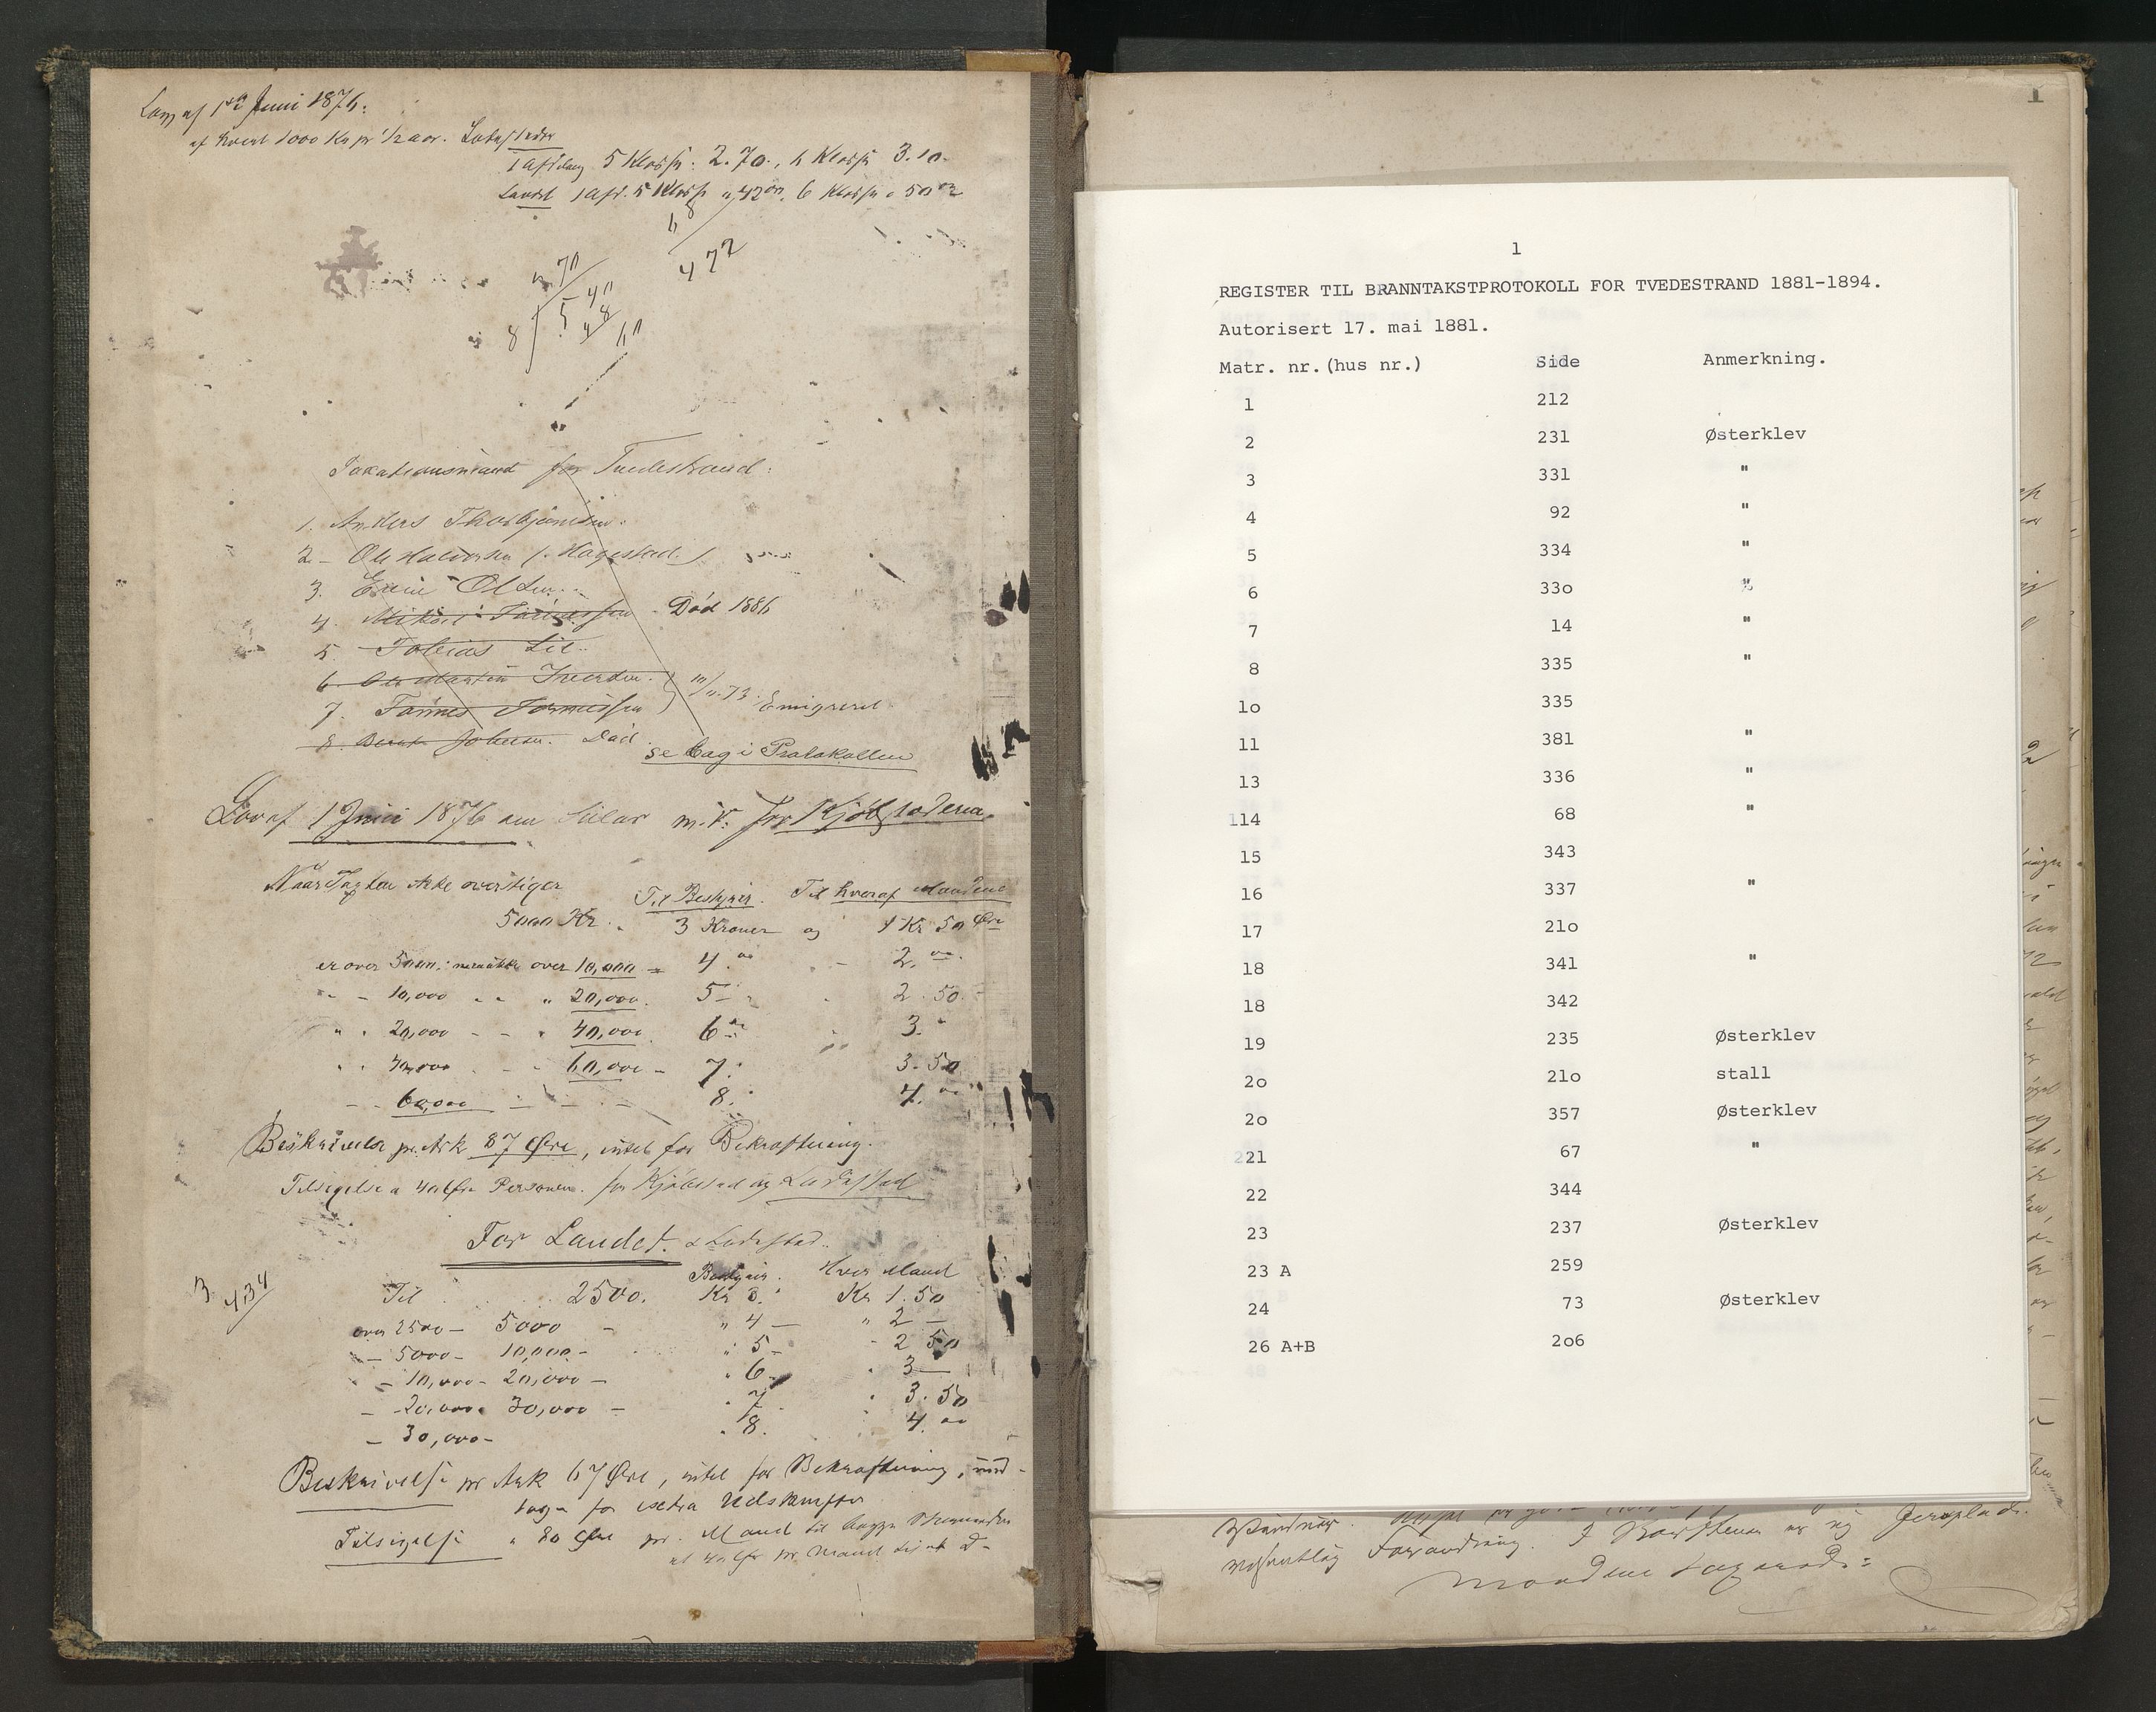 Lov af 1ste Juni 1876.
af hvert 1000 Kr pr 1/2 aar. Ladesteder
1 Afdeling 5 Klasse: 2.70., 6 Klasse 3.10.
Landet 1 Afd. 5 Klasse 6 Klasse
472
2 70
8
5 40
48
60
Taxationsmænd for Tvedestrand:
1. Anders Thorbjörnsen.
2 - Ole Halvorsen (Hagestad.)
3. Olsen.
4. Død 1886
5. Tobias
6. Ole Martin Iversen.
7. Emigreret
8. Bernt Johnsen. Död
se bag i Protokollen
Lov af 1 Juni 1876 om Salær m.V. for Kjøbstæderne.
Naar Taxten ikke overstiger
Til Bestyrer. Til hver af Mændene
5000 Kr. 3 Kroner og 1 Kr 50 Øre
er over 5000, men ikke over 10,000 = 4 2.
" - 10,000 - - " 20,000. 5 - 2.50.
" . 20,000 - - " 40,000. 6 3.
" . 40,000 - - 60,000 - 7. 3.50
- - 60,000 - - - 8. 4.
Beskrivelse pr. Ark 87 Øre, intet for Bekræftning.
Tilsigelse a 40 Øre Personen. for Kjøbstad og Ladested
For Landet. & Ladested.
Bestyrer. Hver Mand
3 434
Til 2500. Kr 3. Kr 1.50
over 2500 - 5000 - " 4 - " 2 -
" - 5000 - 10,000 - " 5 - " 2 50
- 10,000 - 20,000 - " 6 - " 3 -
- 20,000 - 30,000 - " 7 " 3.50
- 30,000 - " 8. 4.
Beskrivelse pr Ark 67 Øre, intet for Bekræftning, und-
tagen for extra Udskrifter
Tilsigelse " 80 Øre pr. Mand til
1
1
REGISTER TIL BRANNTAKSTPROTOKOLL FOR TVEDESTRAND 1881-1894.
Autorisert 17. mai 1881.
Matr. nr.(hus nr.) Side Anmerkning.
1 212
2 231 Østerklev
3 331 "
4 92 "
5 334 "
6 33o "
7 14 "
8 335 "
1o 335
11 381 "
13 336 "
114 68 "
15 343
16 337 "
17 21o
18 341 "
18 342
19 235 Østerklev
2o 21o stall
2o 357 Østerklev
21 67 "
22 344
23 237 Østerklev
23 A 259
24 73 Østerklev
26 A+B 2o6
væsentlig Forandring.